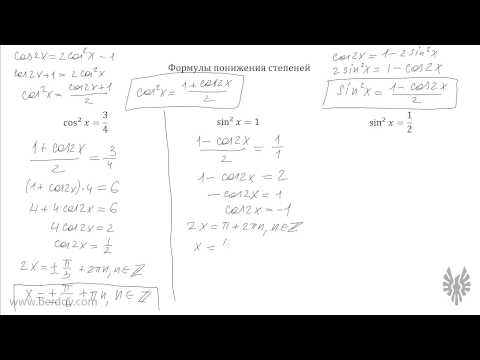 cos2x = 2cos²x − 1
cos2x+1 = 2cos²x
cos²x = (cos2x+1)/2
Формулы понижения степеней
cos²x = (1+cos2x)/2
cos2x = 1 − 2sin²x
2sin²x = 1 − cos2x
sin²x = (1−cos2x)/2
cos² x = 3/4
(1+cos2x)/2 = 3/4
(1+cos2x)·4 = 6
4+4cos2x = 6
4cos2x = 2
cos2x = 1/2
2x = ± π/3 + 2πn, n∈ℤ
x = ± π/6 + πn, n∈ℤ
sin² x = 1
(1−cos2x)/2 = 1/1
1−cos2x = 2
−cos2x = 1
cos2x = −1
2x = π+2πn, n∈ℤ
x =
sin² x = 1/2
www.berdov.com